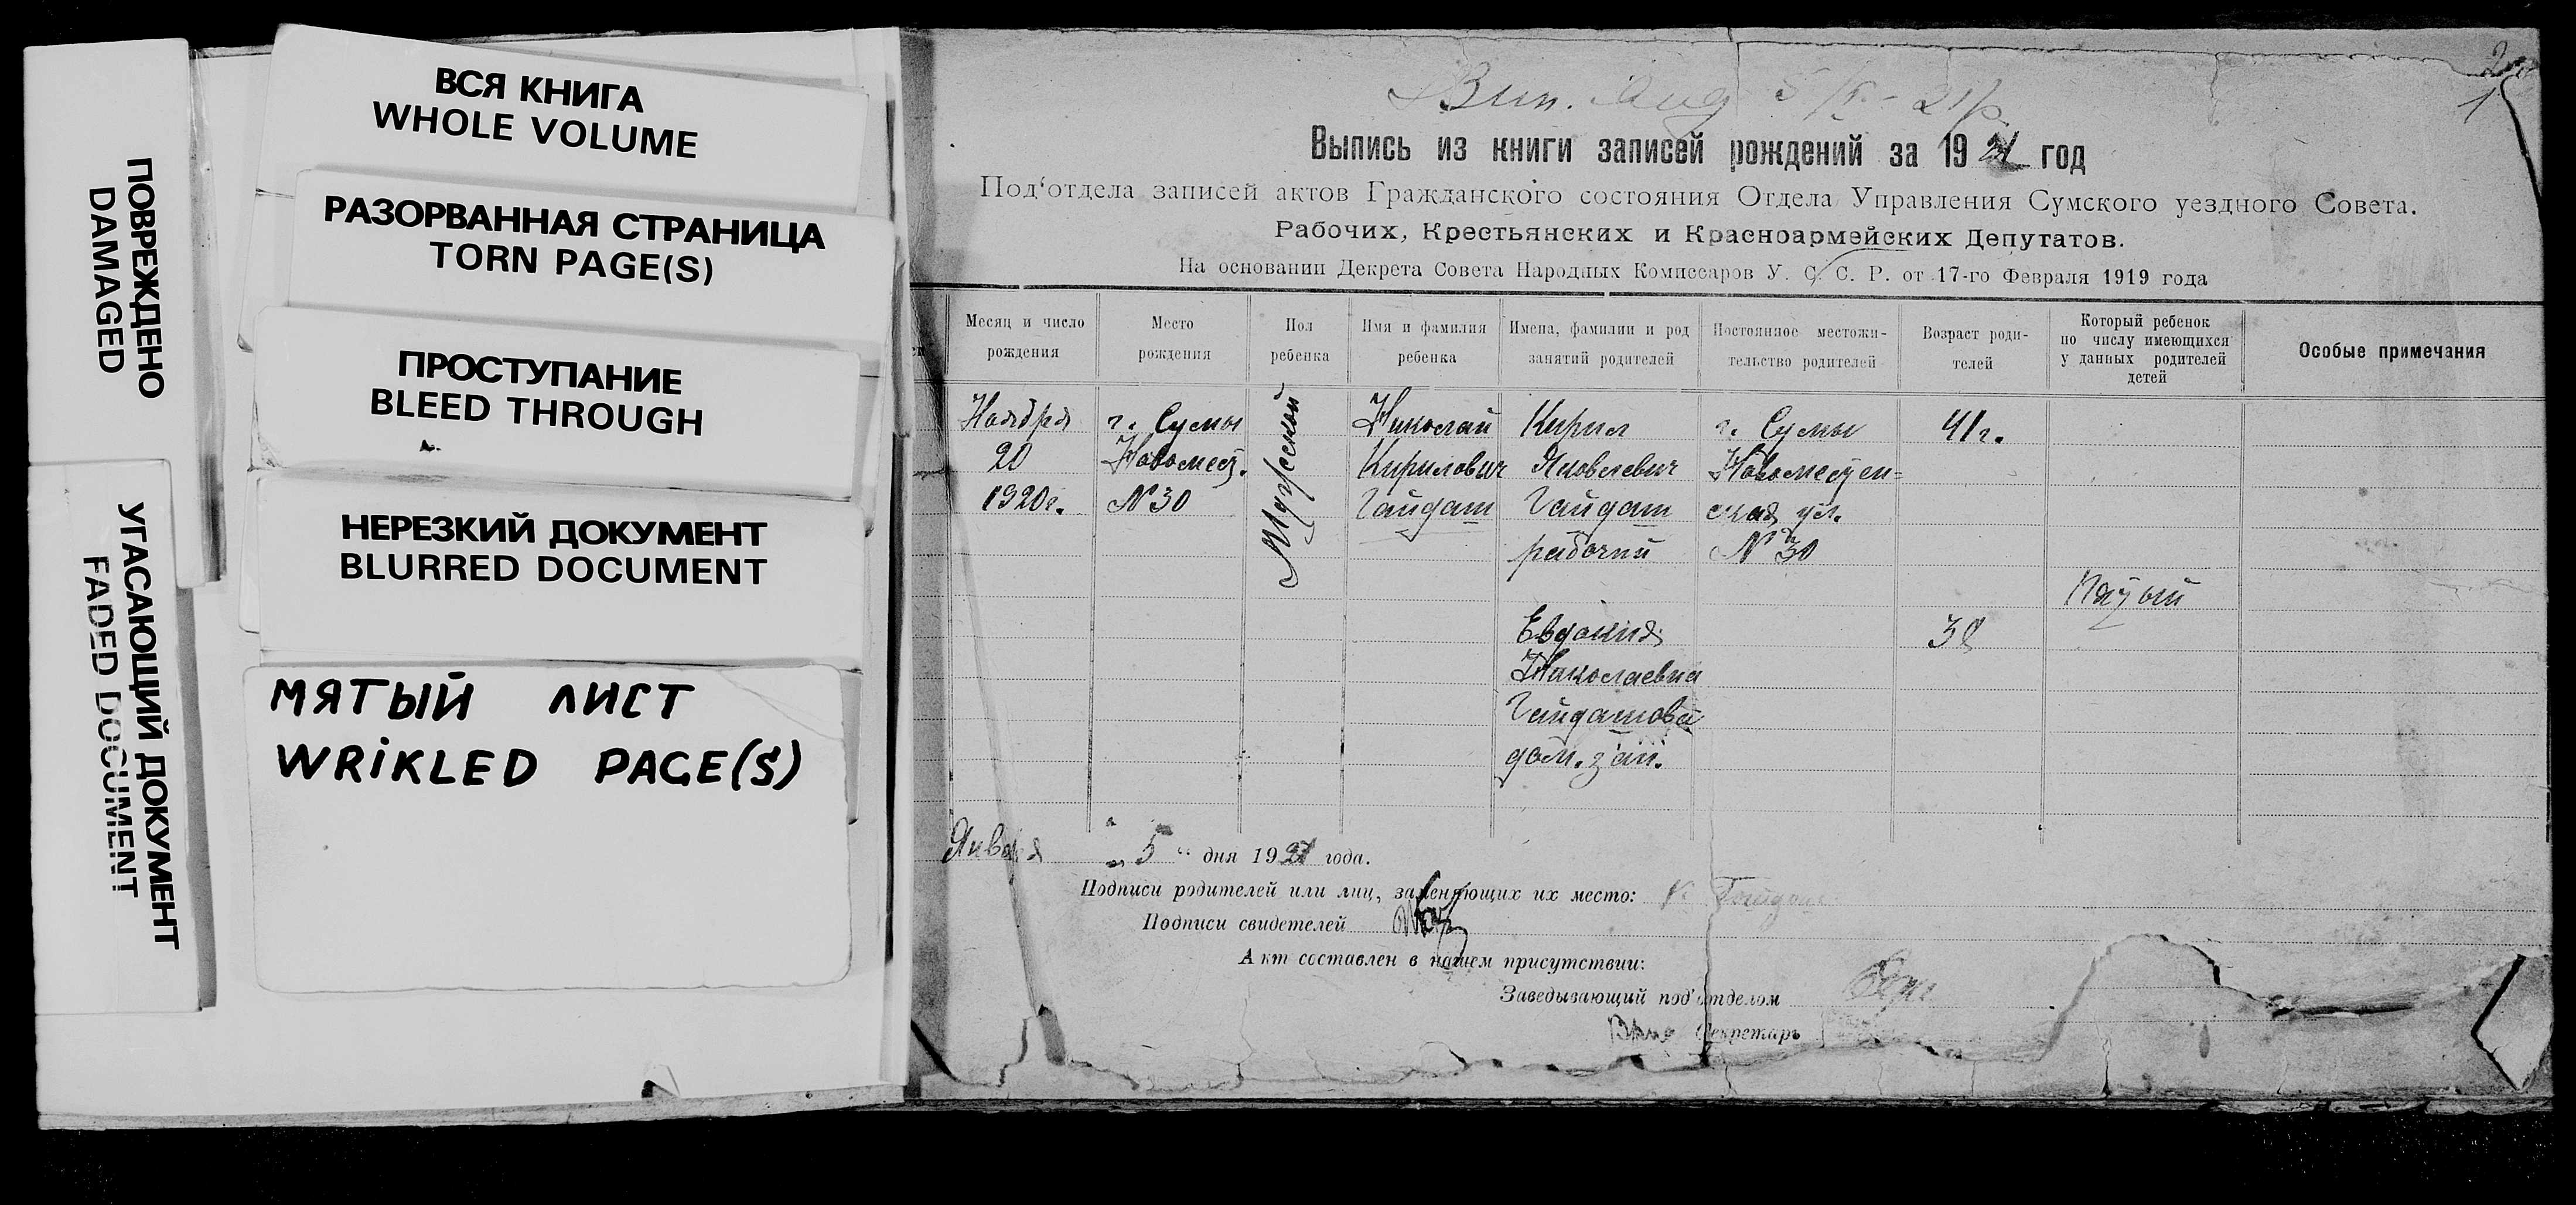 ПОВРЕЖДЕНО
DAMAGED
УГАСАЮЩИЙ ДОКУМЕНТ
FADED DOCUMENT
ВСЯ КНИГА
WHOLE VOLUME
РАЗОРВАННАЯ СТРАНИЦА
TORN PAGE(S)
ПРОСТУПАНИЕ
BLEED THROUGH
НЕРЕЗКИЙ ДОКУМЕНТ
BLURRED DOCUMENT
МЯТЫЙ ЛИСТ
WRiKLED PAGE(S)
1
Выпись из книги записей рождений за 1921 год
Под‘отдела записей актов Гражданского состояния Отдела Управления Сумского уездного Совета.
Рабочих, Крестьянских и Красноармейских Депутатов.
На основании Декрета Совета Народных Комиссаров У. С. С. Р. от 17-го Февраля 1919 года
Месяц и число
рождения
Место
рождения
Пол
ребенка
Имя и фамилия
ребенка
Имена, фамилии и род
занятий родителей
Постоянное местожи-
тельство родителей
Возраст роди-
телей
Который ребенок
по числу имеющихся
у данных родителей
детей
Особые примечания
Ноября
20
1920г.
г. Сумы
Новомест.
№30
Мужеской
Николай
Кирилович
Гайдаш
Кирил
Яковлевич
Гайдаш
рабочий
Евдокия
Николаевна
Гайдашова
дом. зан.
г. Сумы
Новоместен-
ская ул.
№ 30
41г.
38
Пятый
Января „ 5 “ дня 1921 года.
Подписи родителей или лиц, заменяющих их место: К Гайдаш
Подписи свидетелей
Акт составлен в нашем присутствии:
Заведывающий под‘отделом
Секретарь